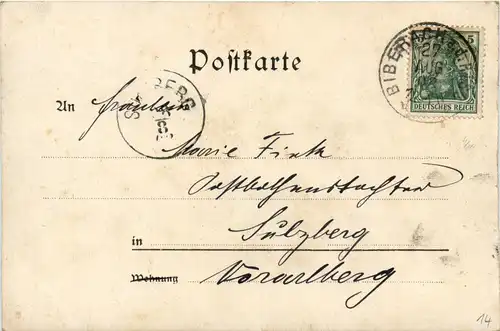 Postkarte
BIBERACH
5
27
AUG
DEUTSCHES REICH
An Fräulein
SULZBERG
Marie Fink
Postbothenstochter
in Sulzberg
Wohnung Vorarlberg
14